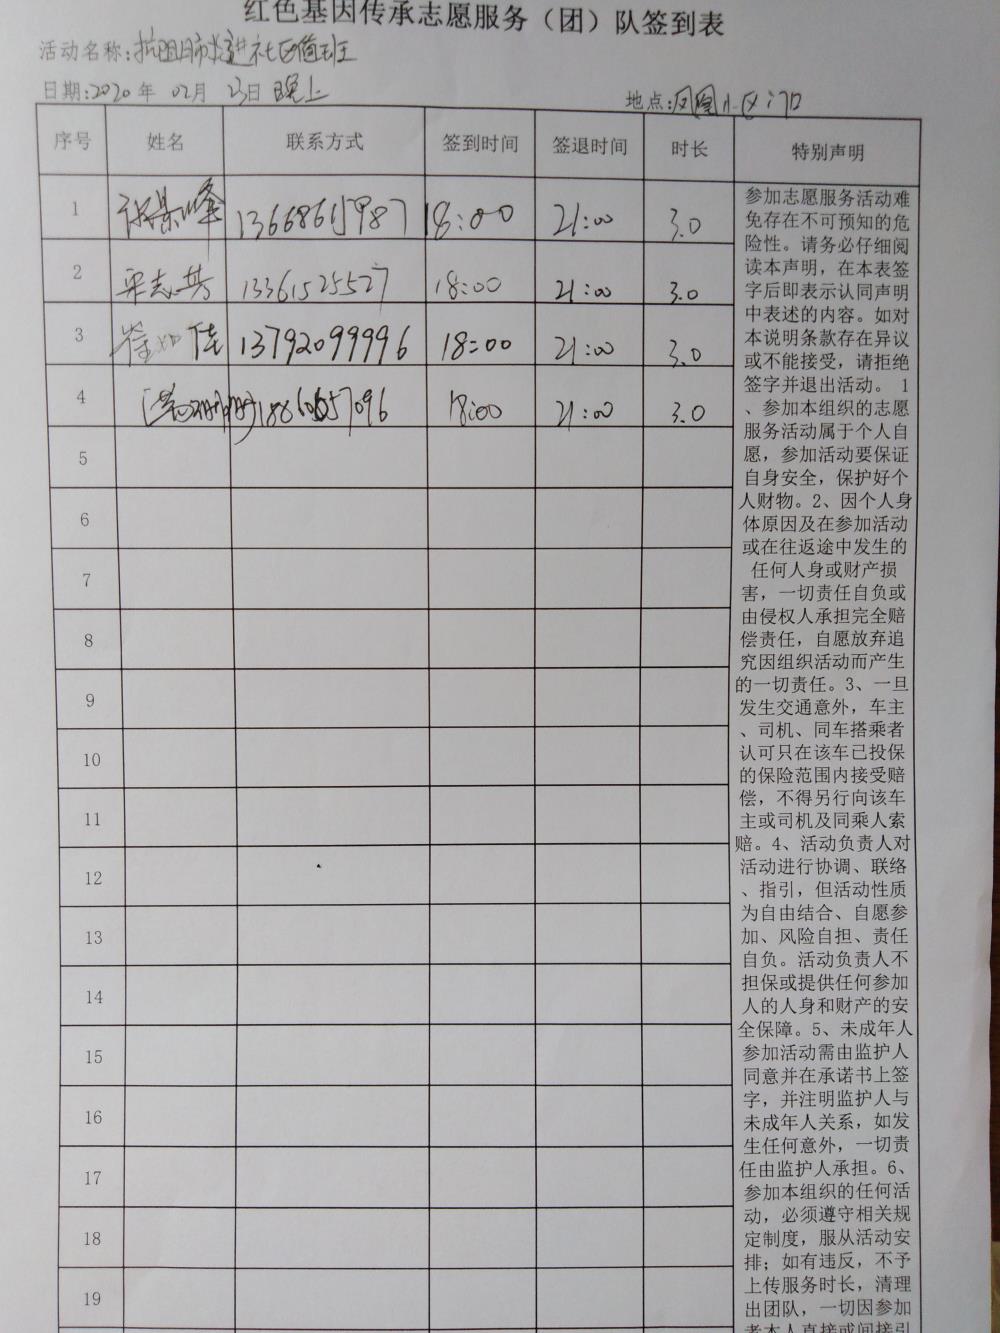 红色基因传承志愿服务（团）队签到表
活动名称:抗阻肺炎进社区值班
日期:2020年 02月 23日 晚上 地点:凤凰小区门口
序号 姓名 联系方式 签到时间 签退时间 时长 特别声明
1 峰 13668615987 18:00 21:00 3.0
2 宋志芬 13361525527 18:00 21:00 3.0
3 佳 13792099996 18:00 21:00 3.0
4 18:00 21:00 3.0
5
6
7
8
9
10
11
12
13
14
15
16
17
18
19
参加志愿服务活动难
免存在不可预知的危
险性。请务必仔细阅
读本声明，在本表签
字后即表示认同声明
中表述的内容。如对
本说明条款存在异议
或不能接受，请拒绝
签字并退出活动。 1
、参加本组织的志愿
服务活动属于个人自
愿，参加活动要保证
自身安全，保护好个
人财物。2、因个人身
体原因及在参加活动
或在往返途中发生的
任何人身或财产损
害，一切责任自负或
由侵权人承担完全赔
偿责任，自愿放弃追
究因组织活动而产生
的一切责任。3、一旦
发生交通意外，车主
、司机、同车搭乘者
认可只在该车已投保
的保险范围内接受赔
偿，不得另行向该车
主或司机及同乘人索
赔。4、活动负责人对
活动进行协调、联络
、指引，但活动性质
为自由结合、自愿参
加、风险自担、责任
自负。活动负责人不
担保或提供任何参加
人的人身和财产的安
全保障。5、未成年人
参加活动需由监护人
同意并在承诺书上签
字，并注明监护人与
未成年人关系，如发
生任何意外，一切责
任由监护人承担。6、
参加本组织的任何活
动，必须遵守相关规
定制度，服从活动安
排；如有违反，不予
上传服务时长，清理
出团队，一切因参加
者本人直接或间接引